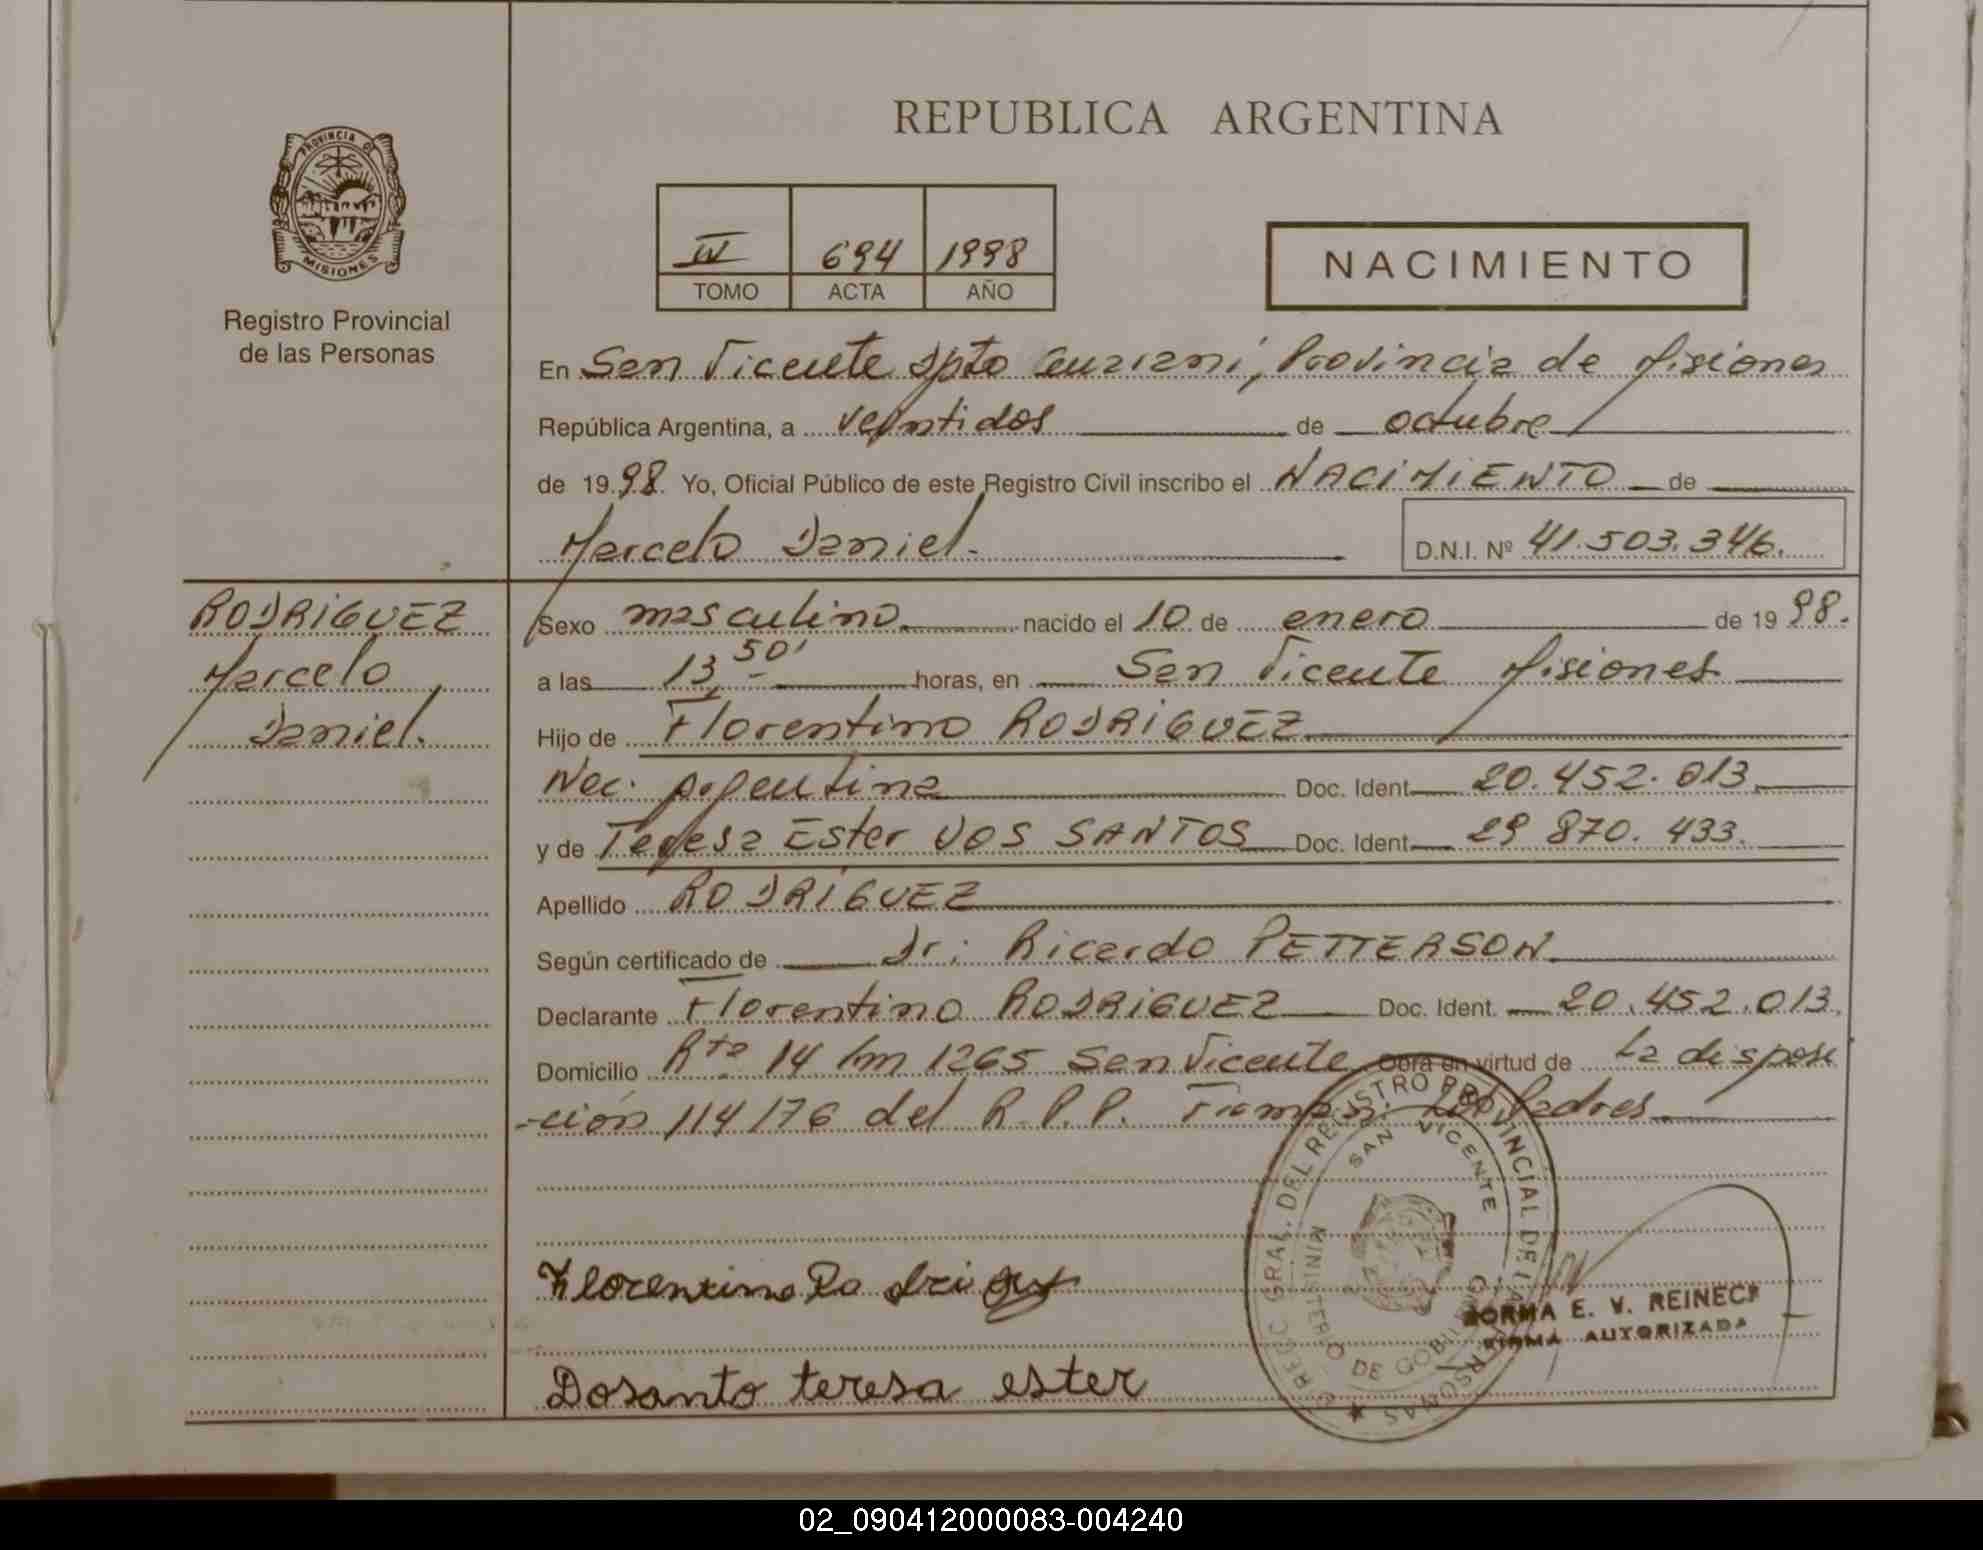 REPUBLICA ARGENTINA
PROVINCIA DE
MISIONES
Registro Provincial
de las Personas
IV 694 1998
TOMO ACTA AÑO
NACIMIENTO
En San Vicente Dpto Guarani, Provincia de Misiones
República Argentina, a veintidos de octubre
de 1998. Yo, Oficial Público de este Registro Civil inscribo el NACIMIENTO de
Marcelo Daniel.
D.N.I. Nº 41.503.346.
RODRIGUEZ
Marcelo
Daniel.
Sexo masculino nacido el 10 de enero de 1998.
a las 13,50' horas, en San Vicente Misiones
Hijo de Florentino RODRIGUEZ
Nac. Argentina Doc. Ident. 20.452.013
y de Teresa Ester DOS SANTOS Doc. Ident. 29 870.433.
Apellido RODRIGUEZ
Según certificado de Dr: Ricardo PETTERSON
Declarante Florentino RODRIGUEZ Doc. Ident. 20.452.013.
Domicilio Rta 14 km 1265 San Vicente Obra en virtud de La disposi
-ción 114/76 del R.P.P. Firman: Los Padres
DIREC. GRAL. DEL REGISTRO PROVINCIAL DE LAS PERSONAS
SAN VICENTE
MINISTERIO DE GOBIERNO
Florentino Rodriguez
NORMA E. V. REINECK
FIRMA AUTORIZADA
Dosanto teresa ester
02_090412000083-004240